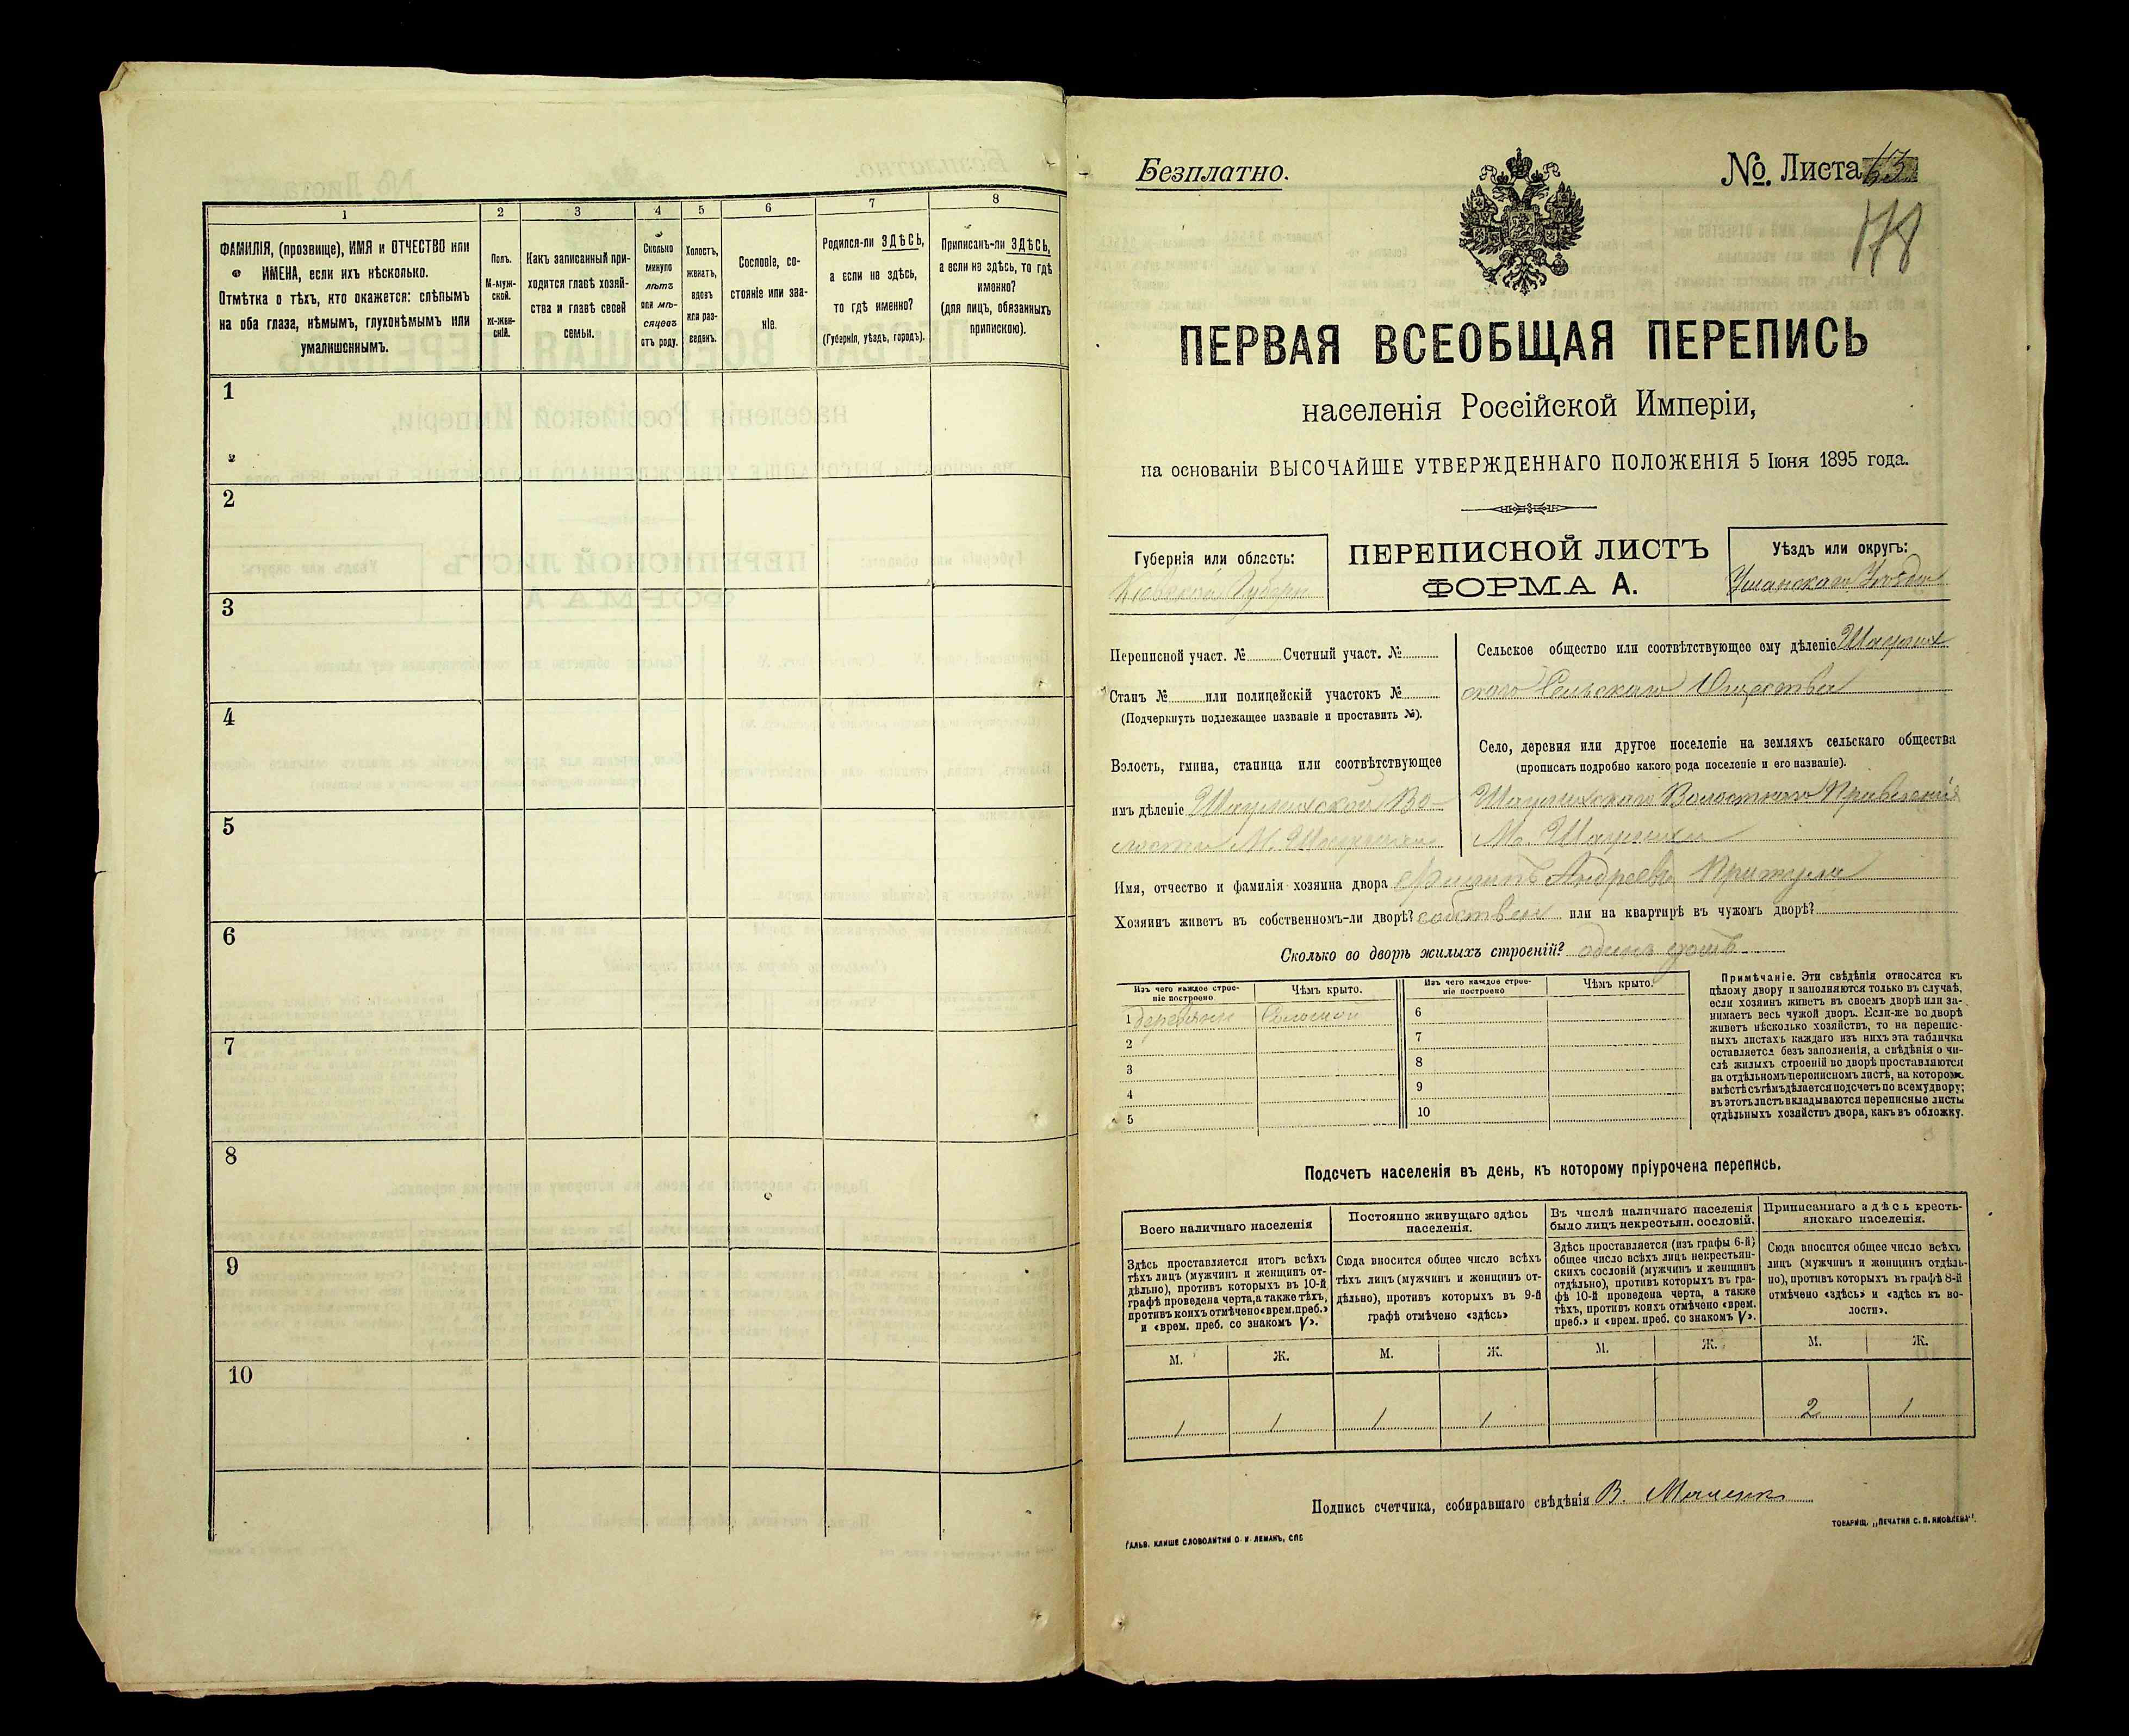 1
2
3
4
5
6
7
8
ФАМИЛІЯ, (прозвище), ИМЯ и ОТЧЕСТВО или
ИМЕНА, если ихъ нѣсколько.
Отмѣтка о тѣхъ, кто окажется: слѣпымъ
на оба глаза, нѣмымъ, глухонѣмымъ или
умалишеннымъ.
Полъ.
М-муж-
ской.
Ж-жен-
скій.
Какъ записанный при-
ходится главѣ хозяй-
ства и главѣ своей
семьи.
Сколько
минуло
лѣтъ
или мѣ-
сяцевъ
отъ роду.
Холостъ,
женатъ,
вдовъ
или раз-
веденъ.
Сословіе, со-
стояніе или зва-
ніе.
Родился-ли ЗДѢСЬ,
а если не здѣсь,
то гдѣ именно?
(Губернія, уѣздъ, городъ).
Приписанъ-ли ЗДѢСЬ,
а если не здѣсь, то гдѣ
именно?
(для лицъ, обязанныхъ
припискою).
1
2
3
4
5
6
7
8
9
10
Безплатно.
№. Листа 43
178
ПЕРВАЯ ВСЕОБЩАЯ ПЕРЕПИСЬ
населенія Россійской Имперіи,
на основаніи ВЫСОЧАЙШЕ УТВЕРЖДЕННАГО ПОЛОЖЕНІЯ 5 Іюня 1895 года.
Губернія или область:
Кіевской Губерн
ПЕРЕПИСНОЙ ЛИСТЪ
ФОРМА А.
Уѣздъ или округъ:
Уманскаго Уѣзда
Переписной участ. № Счетный участ. №
Станъ № или полицейскій участокъ №
(Подчеркнуть подлежащее названіе и проставить №).
Волость, гмина, станица или соотвѣтствующее
имъ дѣленіе Шаулихской Во-
лости М. Шаулиха
Сельское общество или соотвѣтствующее ему дѣленіе Шаулих
скаго Сельскаго Общества
Село, деревня или другое поселеніе на земляхъ сельскаго общества
(прописать подробно какого рода поселеніе и его названіе).
Шаулихскаго Волостного Правленія
М. Шаулиха
Имя, отчество и фамилія хозяина двора Филипъ Андреевъ Притула
Хозяинъ живетъ въ собственномъ-ли дворѣ? собствен или на квартирѣ въ чужомъ дворѣ?
Сколько во дворѣ жилыхъ строеній? одинъ домъ
Изъ чего каждое строе-
ніе построено
Чѣмъ крыто.
Изъ чего каждое строе-
ніе построено
Чѣмъ крыто.
1 деревян Соломой
2
3
4
5
6
7
8
9
10
Примѣчаніе. Эти свѣдѣнія относятся къ
цѣлому двору и заполняются только въ случаѣ,
если хозяинъ живетъ въ своемъ дворѣ или за-
нимаетъ весь чужой дворъ. Если-же во дворѣ
живетъ нѣсколько хозяйствъ, то на перепис-
ныхъ листахъ каждаго изъ нихъ эта табличка
оставляется безъ заполненія, а свѣдѣнія о чи-
слѣ жилыхъ строеній во дворѣ проставляются
на отдѣльномъ переписномъ листѣ, на которомъ
вмѣстѣ съ тѣмъ дѣлается подсчетъ по всему двору;
въ этотъ листъ вкладываются переписные листы
отдѣльныхъ хозяйствъ двора, какъ въ обложку.
Подсчетъ населенія въ день, къ которому пріурочена перепись.
Всего наличнаго населенія
Постоянно живущаго здѣсь
населенія.
Въ числѣ наличнаго населенія
было лицъ некрестьян. сословій.
Приписаннаго здѣсь кресть-
янскаго населенія.
Здѣсь проставляется итогъ всѣхъ
тѣхъ лицъ (мужчинъ и женщинъ от-
дѣльно), противъ которыхъ въ 10-й
графѣ проведена черта, а также тѣхъ,
противъ коихъ отмѣчено «врем. преб.»
и «врем. преб. со знакомъ V».
Сюда вносится общее число всѣхъ
тѣхъ лицъ (мужчинъ и женщинъ от-
дѣльно), противъ которыхъ въ 9-й
графѣ отмѣчено «здѣсь»
Здѣсь проставляется (изъ графы 6-й)
общее число всѣхъ лицъ некрестьян-
скихъ сословій (мужчинъ и женщинъ
отдѣльно), противъ которыхъ въ гра-
фѣ 10-й проведена черта, а также
тѣхъ, противъ коихъ отмѣчено «врем.
преб.» и «врем. преб. со знакомъ V».
Сюда вносится общее число всѣхъ
лицъ (мужчинъ и женщинъ отдѣль-
но), противъ которыхъ въ графѣ 8-й
отмѣчено «здѣсь» и «здѣсь къ во-
лости».
М. Ж. М. Ж. М. Ж. М. Ж.
1 1 1 1 2 1
Подпись счетчика, собиравшаго свѣдѣнія В.
ГАЛЬВ. КЛИШЕ СЛОВОЛИТНИ О. И. ЛЕМАНЪ, СПБ
ТОВАРИЩ. „ПЕЧАТНЯ С. П. ЯКОВЛЕВА“.